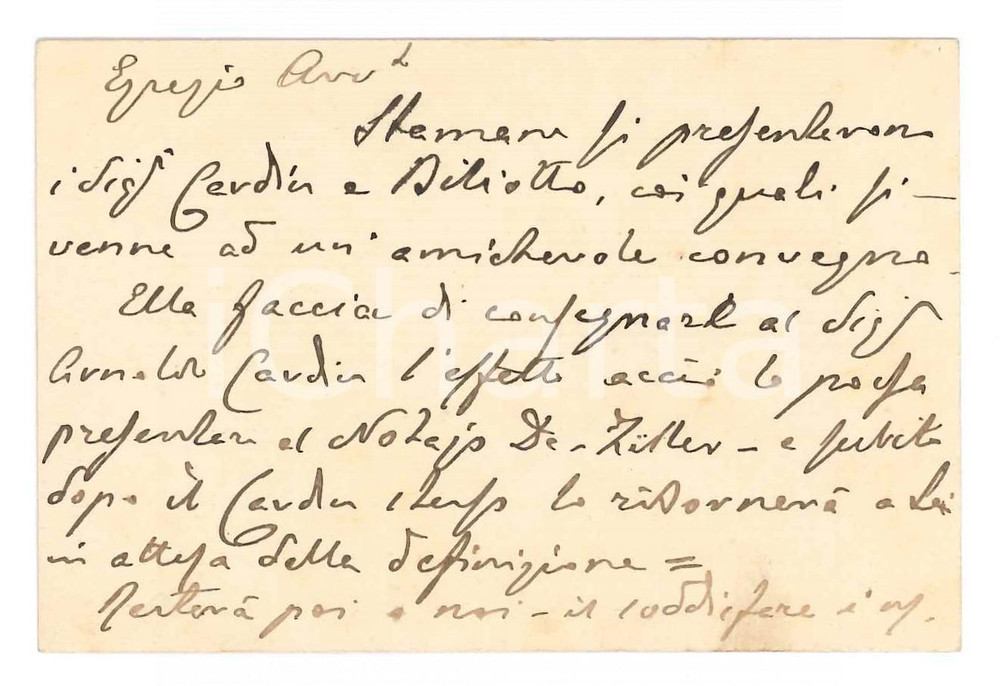 Egregio Avv.
Stamane si presentarono
i Sigri Cardin e Biliotto, coi quali si
venne ad un' amichevole convegno.
Ella faccia di consegnare al Sigr
Arnoldo Cardin l'effetto acciò lo possa
presentare al Notajo De-Ziller - e subito
dopo il Cardin stesso lo ritornerà a Lei
in attesa della definizione =
Resterà poi a noi - il soddisfare i
iCharta